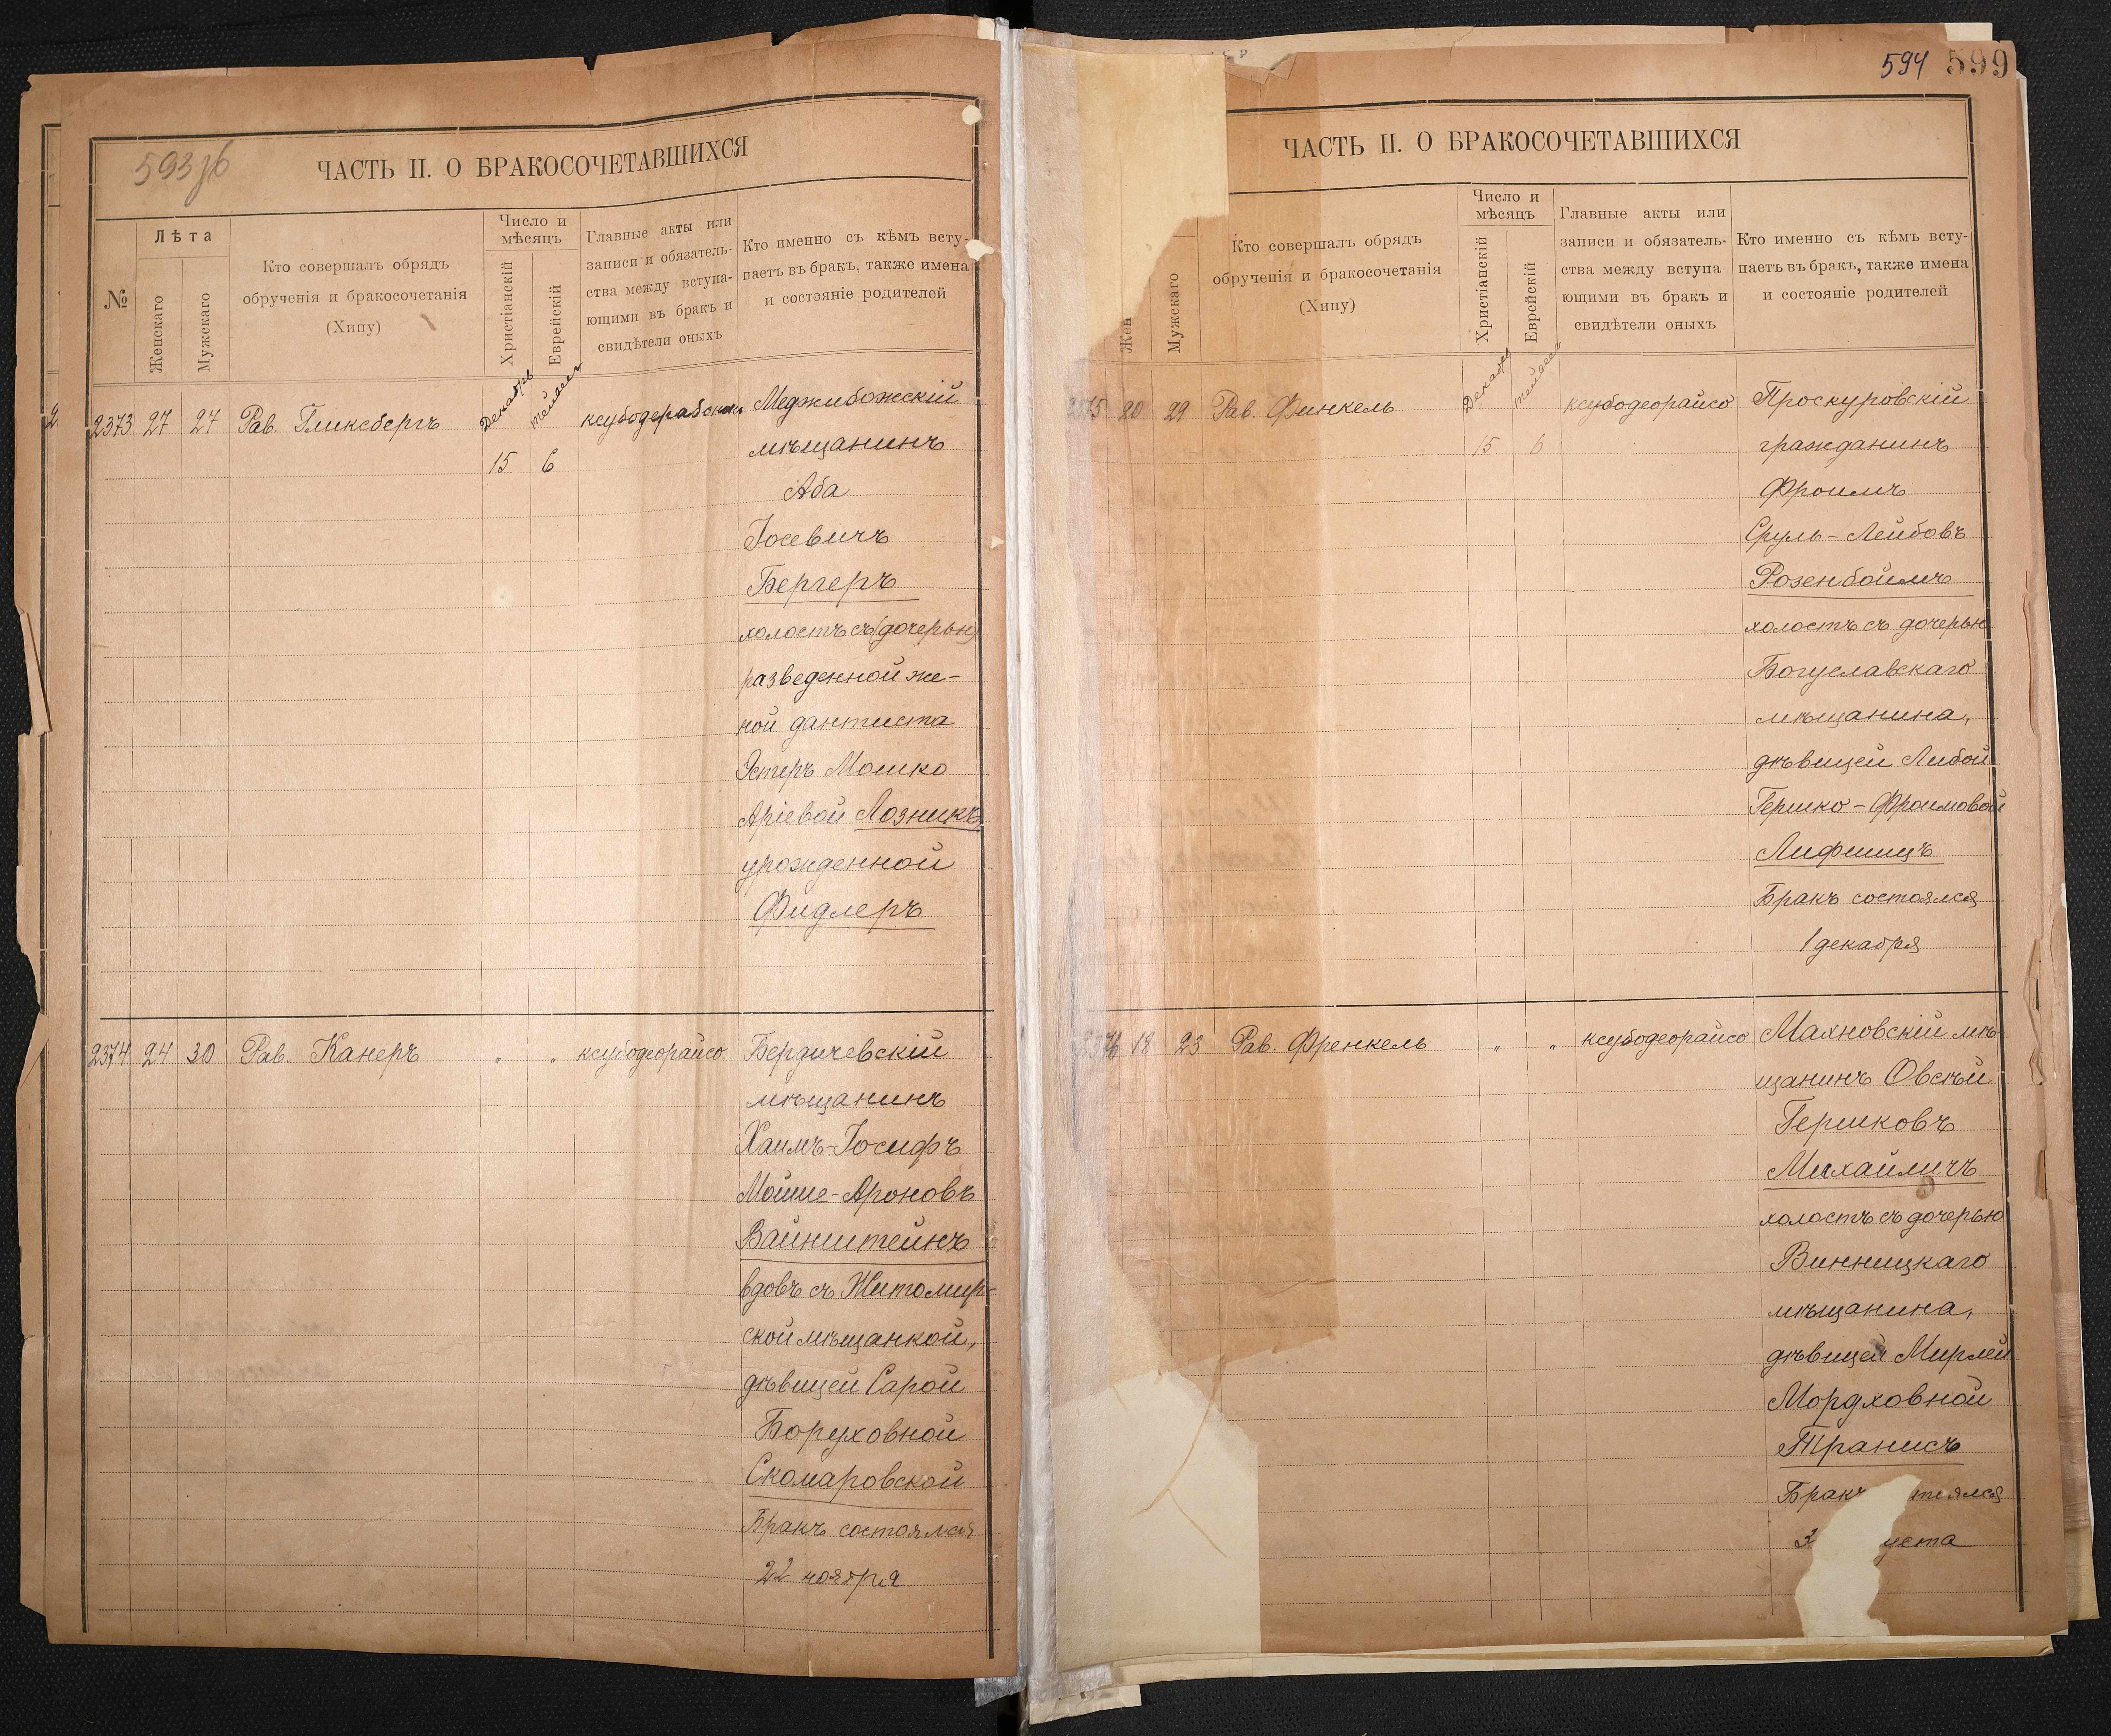 593 зв
ЧАСТЬ II. О БРАКОСОЧЕТАВШИХСЯ
№
Лѣта
Женскаго
Мужскаго
Кто совершалъ обрядъ
обрученія и бракосочетанія
(Хипу)
Число и
мѣсяцъ
Христіанскій
Еврейскій
Главные акты или
записи и обязатель-
ства между вступа-
ющими въ бракъ и
свидѣтели оныхъ
Кто именно съ кѣмъ всту-
паетъ въ бракъ, также имена
и состояніе родителей
2373 27 27 Рав. Гликсбергъ
Декабрь
15 6
Меджибожскій
мѣщанинъ
Аба
Іосевичъ
Бергеръ
холостъ съ (дочерью)
разведенной же-
ной дантиста
Эстеръ Мошко
Аріевой Лозникъ,
урожденной
Фидлеръ
2374 24 30 Рав. Канеръ " " ксубодеорайсо
Бердичевскій
мѣщанинъ
Хаимъ-Іосифъ
Мойше-Ароновъ
Вайнштейнъ
вдовъ съ Житомир-
ской мѣщанкой,
дѣвицей Сарой
Боруховной
Скомаровской
Бракъ состоялся
22 ноября
594 599
ЧАСТЬ II. О БРАКОСОЧЕТАВШИХСЯ
Жен
Мужскаго
Кто совершалъ обрядъ
обрученія и бракосочетанія
(Хипу)
Число и
мѣсяцъ
Христіанскій
Еврейскій
Главные акты или
записи и обязатель-
ства между вступа
ющими въ бракъ и
свидѣтели оныхъ
Кто именно съ кѣмъ всту-
паетъ въ бракъ, также имена
и состояніе родителей
2375 20 29 Рав. Финкель
Декабрь
15 6
ксубодеорайсо
Проскуровскій
гражданинъ
Фроимъ
Сруль-Лейбовъ
Розенбоимъ
холостъ съ дочерью
Богуславскаго
мѣщанина,
дѣвицей Либой
Гершко-Фроимовой
Лифшицъ
Бракъ состоялся
1 декабря
2376 18 23 Рав. Френкель " " ксубодеорайсо
Махновскій мѣ
щанинъ Овсѣй
Гершковъ
Михайличъ
холостъ съ дочерью
Винницкаго
мѣщанина,
дѣвицей Мирлей
Мордховной
Транисъ
Бракъ тоялся
3 уста